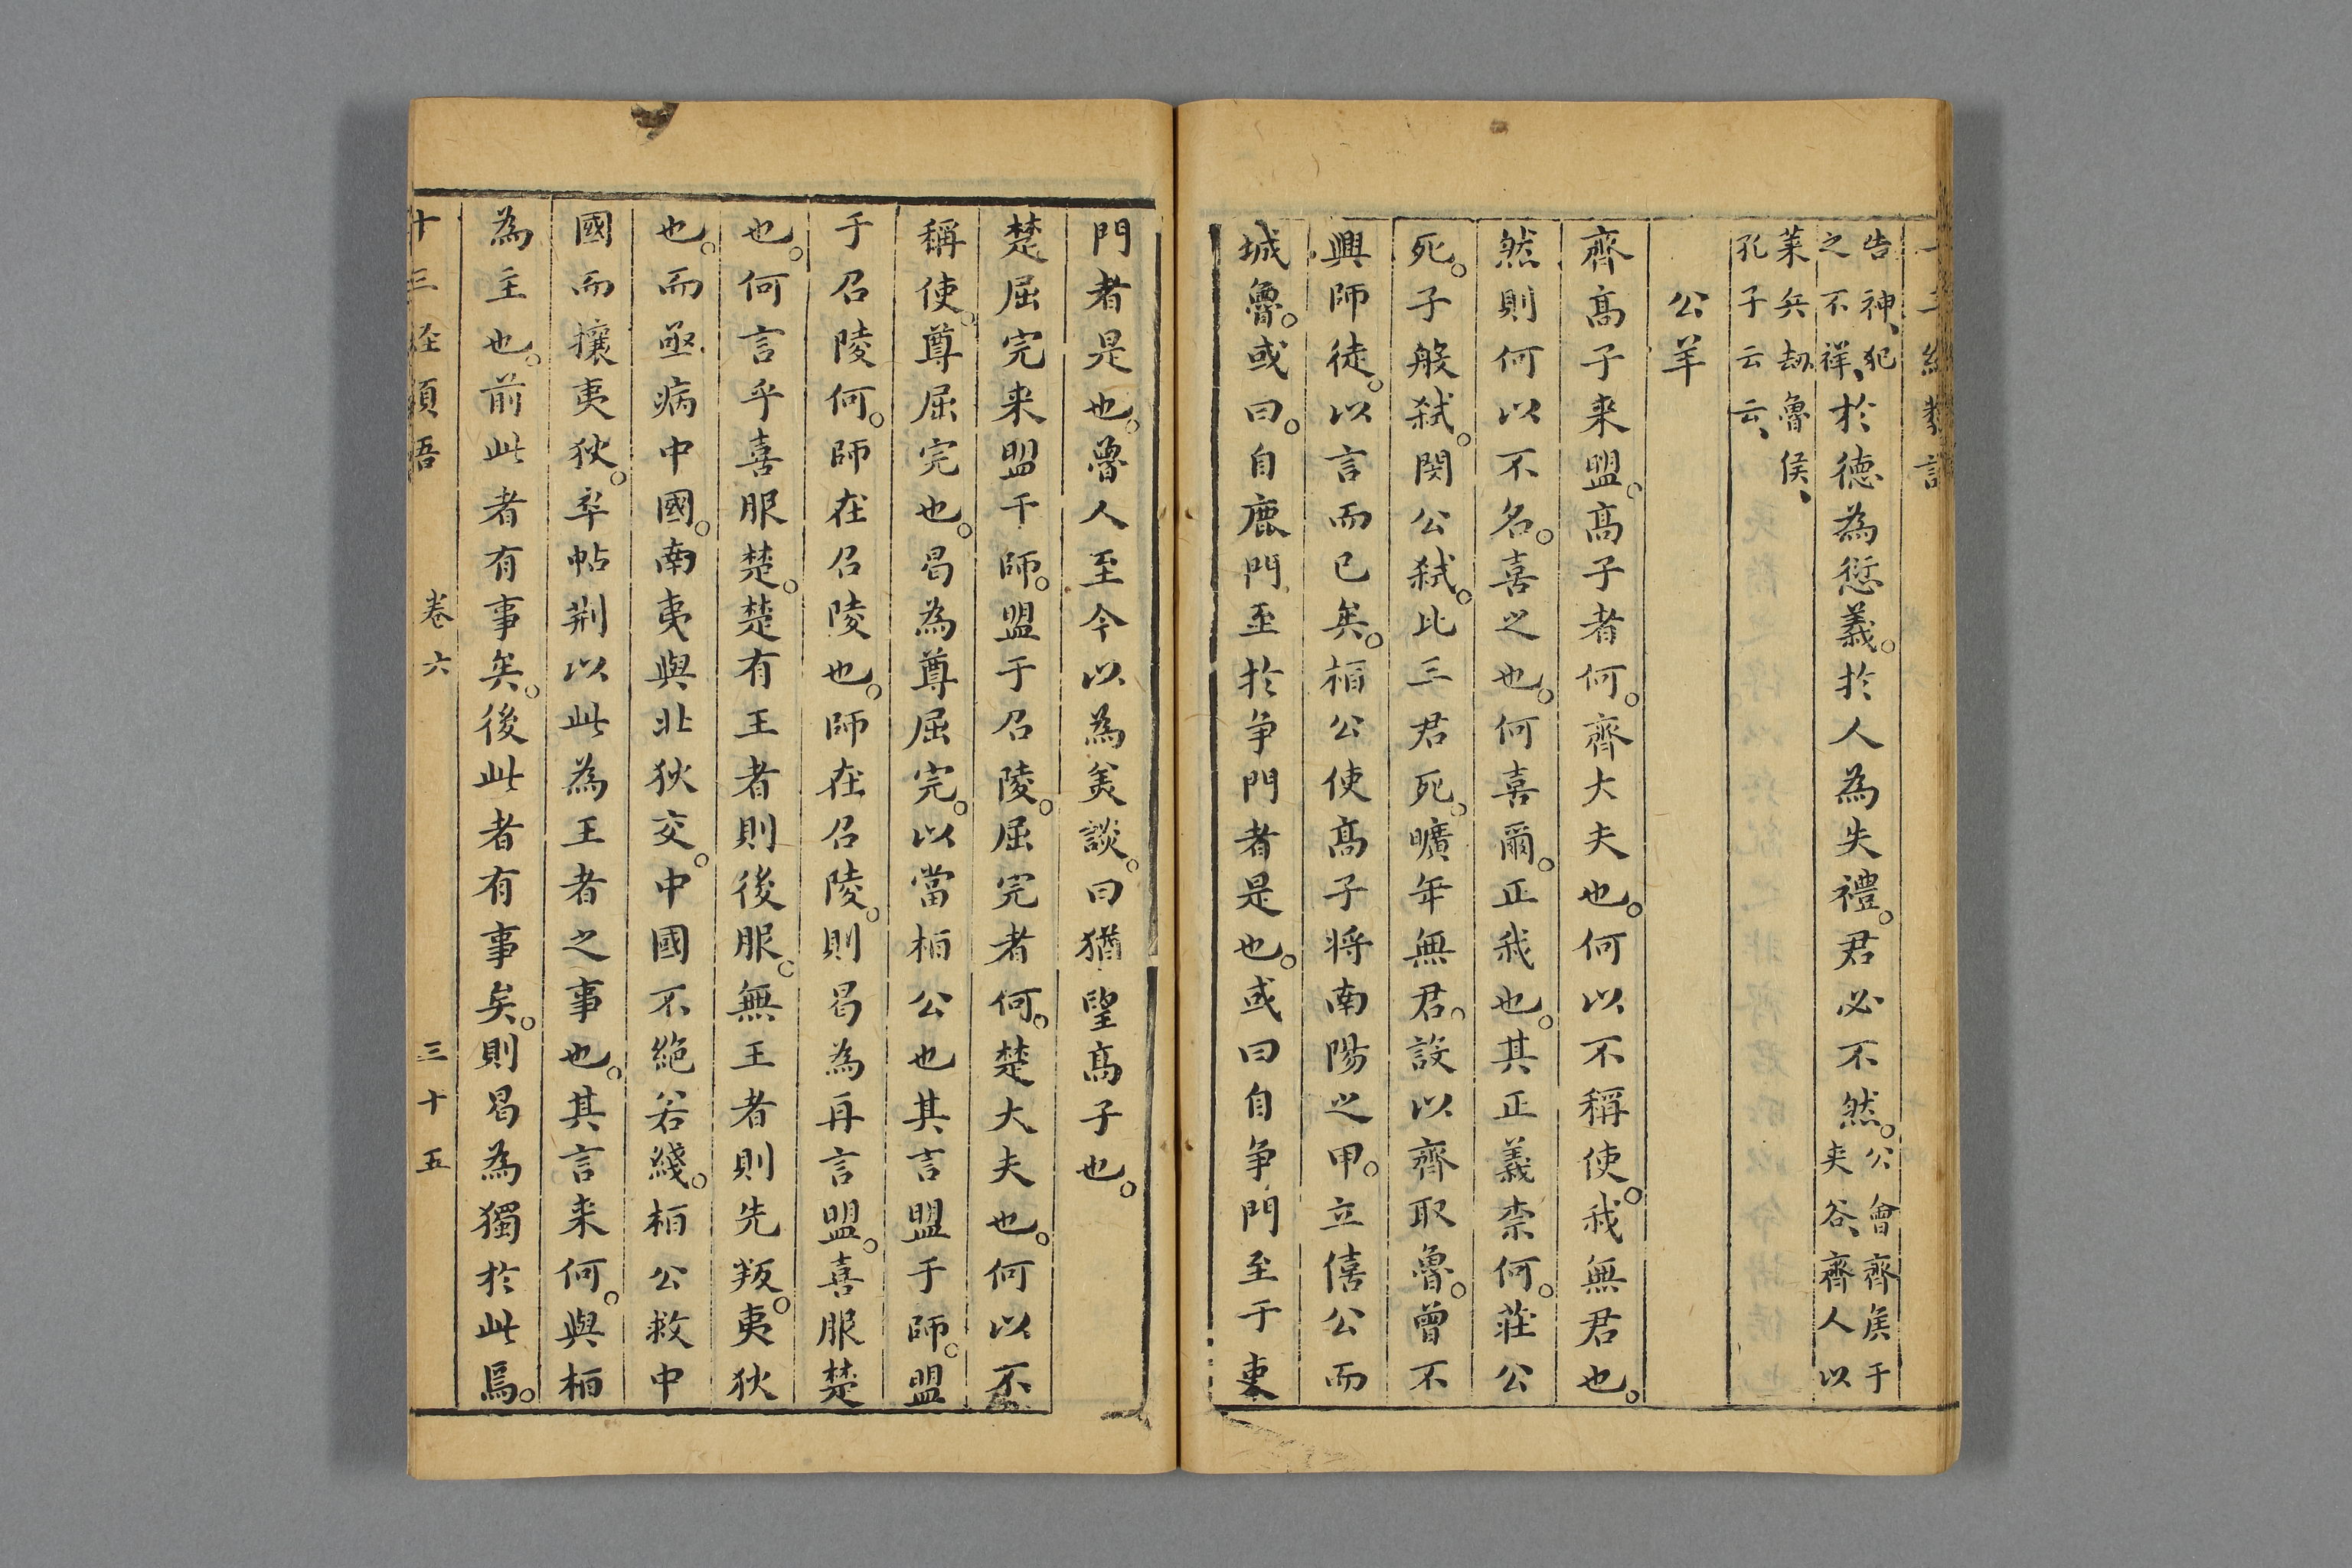 十三經類語
告神、犯
之不祥、於德為愆義。於人為失禮。君必不然。公會齊侯于
夾谷、齊人以
萊兵劫魯侯、
孔子云云、
公羊
齊髙子来盟。髙子者何。齊大夫也。何以不稱使。我無君也。
然則何以不名。喜之也。何喜爾。正我也。其正義柰何。莊公
死。子般弑。閔公弑。比三君死。曠年無君。設以齊取魯。曾不
興師徒。以言而已矣。栢公使髙子将南陽之甲。立僖公而
城魯。或曰。自鹿門至於争門者是也。或曰自争門至于吏
門者是也。魯人至今以為美談。曰猶望髙子也。
楚屈完来盟于師。盟于召陵。屈完者何。楚大夫也。何以不
稱使。尊屈完也。曷為尊屈完。以當栢公也其言盟于師。盟
于召陵何。師在召陵也。師在召陵。則曷為再言盟。喜服楚
也。何言乎喜服楚。楚有王者則後服。無王者則先叛。夷狄
也。而亟病中國。南夷與北狄交。中國不絶若綫。栢公救中
國而攘夷狄。卒帖荆以此為王者之事也。其言来何。與栢
為主也。前此者有事矣。後此者有事矣。則曷為獨於此焉。
十三経類語　卷六　三十五